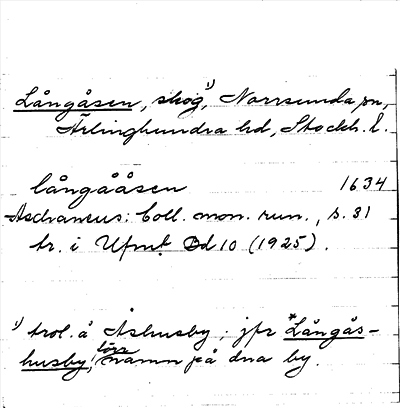 Långåsen, skog,¹⁾ Norrsunda sn,
Ärlinghundra hd, Stockh. l.
långååsen 1634
Aschaneus: Coll. mon. run., s. 31
tr. i Ufmt Bd 10 (1925).
¹⁾ trol. å Åshusby; jfr *Långås-
husby, förr namn på dna by.